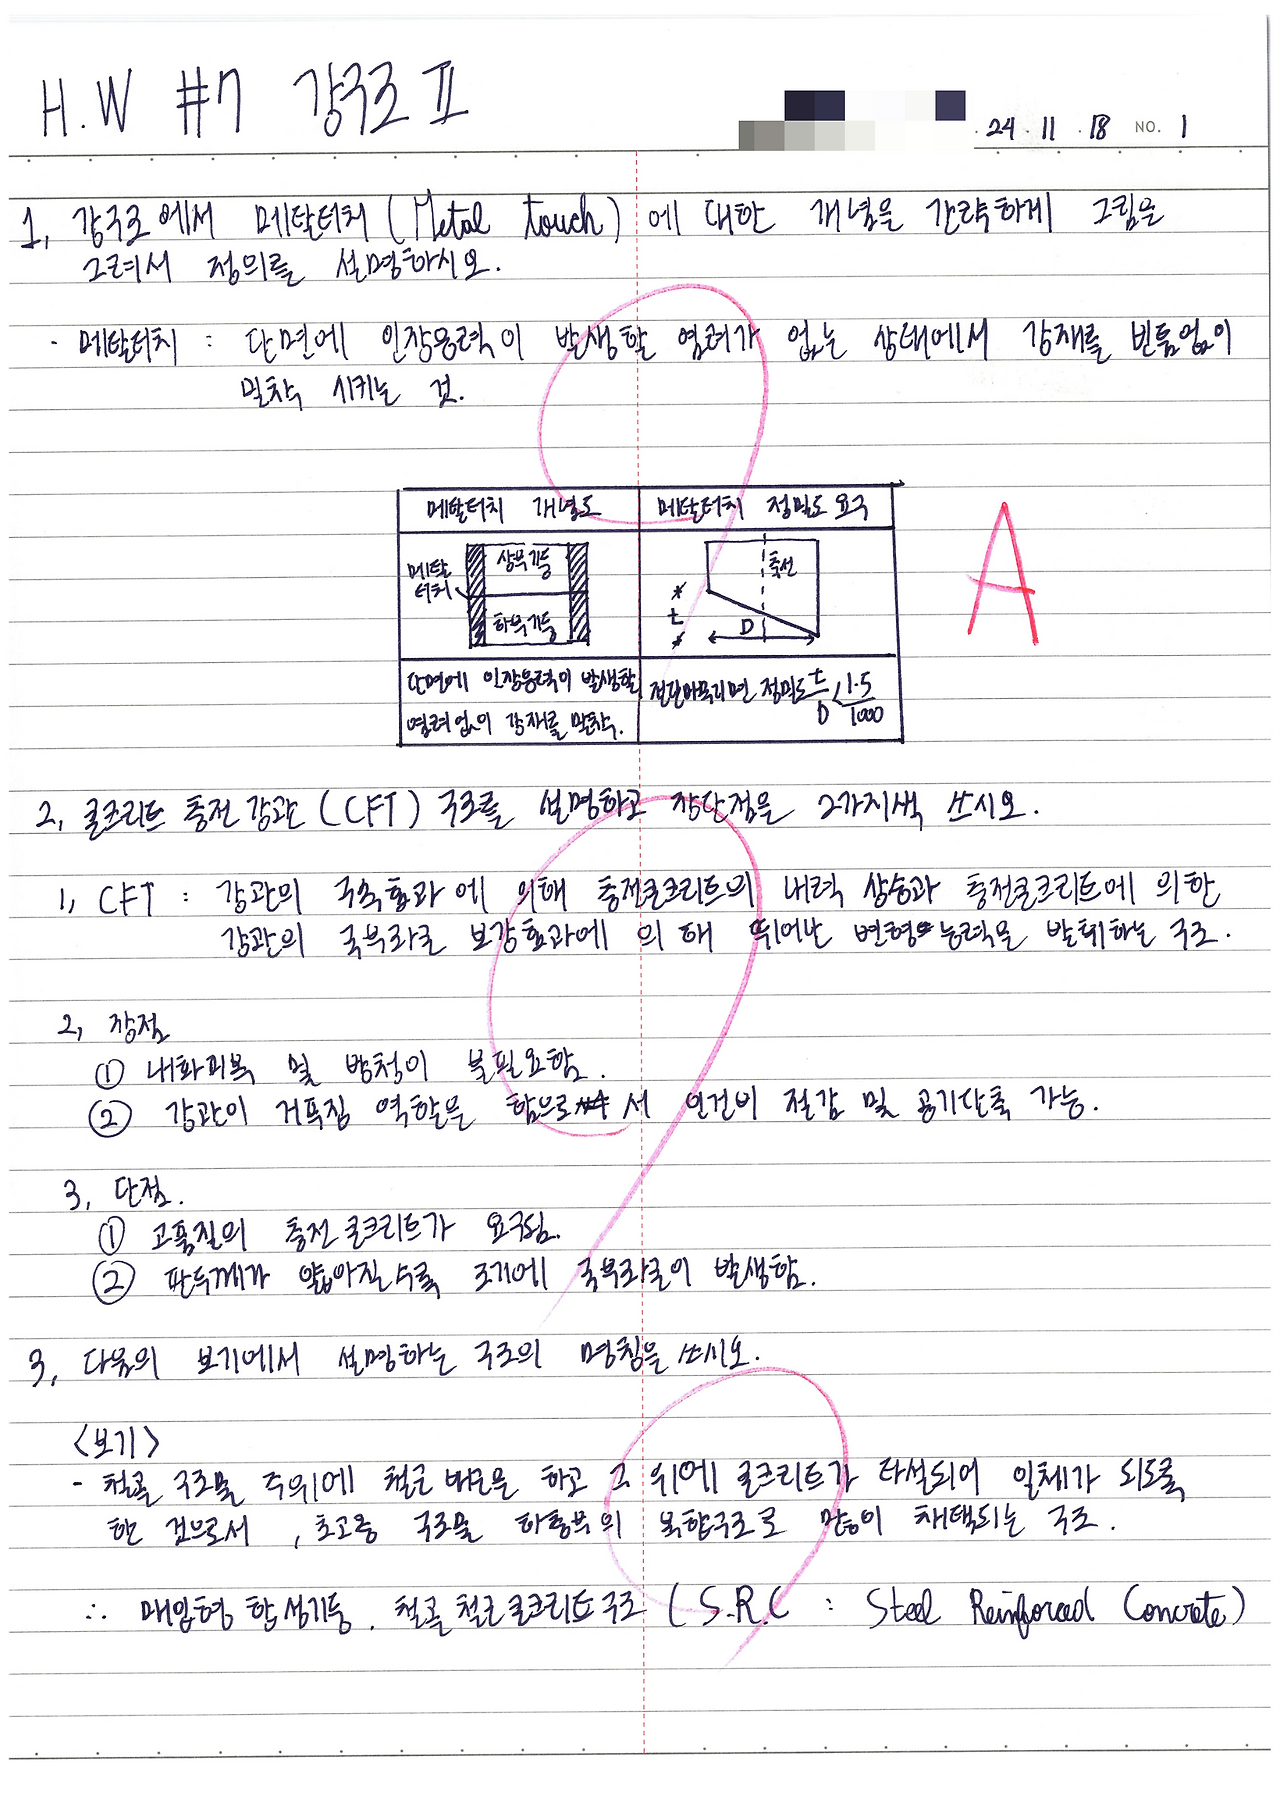 H.W #7 강구조 II
24. 11. 18 NO. 1
1, 강구조에서 메탈터치 (Metal touch) 에 대한 개념을 간략하게 그림을
그려서 정의를 설명하시오.
- 메탈터치 : 단면에 인장응력이 발생할 염려가 없는 상태에서 강재를 빈틈없이
밀착 시키는 것.
메탈터치 개념도
메탈터치 정밀도 요구
메탈
터치
상부기둥
하부기둥
축선
t
D
단면에 인장응력이 발생할
염려 없이 강재를 밀착.
절단마무리면 정밀도 t/D < 1.5/1000
A
2, 콘크리트 충전 강관 (CFT) 구조를 설명하고 장단점을 2가지색 쓰시오.
1, CFT : 강관의 구속효과에 의해 충전콘크리트의 내력 상승과 충전콘크리트에 의한
강관의 국부좌굴 보강효과에 의해 뛰어난 변형 능력을 발휘하는 구조.
2, 장점
① 내화피복 및 방청이 불필요함.
② 강관이 거푸집 역할을 함으로 서 인건비 절감 및 공기단축 가능.
3, 단점.
① 고품질의 충전 콘크리트가 요구됨.
② 판두께가 얇아질수록 조기에 국부좌굴이 발생함.
3, 다음의 보기에서 설명하는 구조의 명칭을 쓰시오.
<보기>
- 철골 구조물 주위에 철근 배근을 하고 그 위에 콘크리트가 타설되어 일체가 되도록
한 것으로서, 초고층 구조물 하층부의 복합구조로 많이 채택되는 구조.
∴ 매입형 합성기둥. 철골철근콘크리트구조 (S.R.C : Steel Reinforced Concrete)